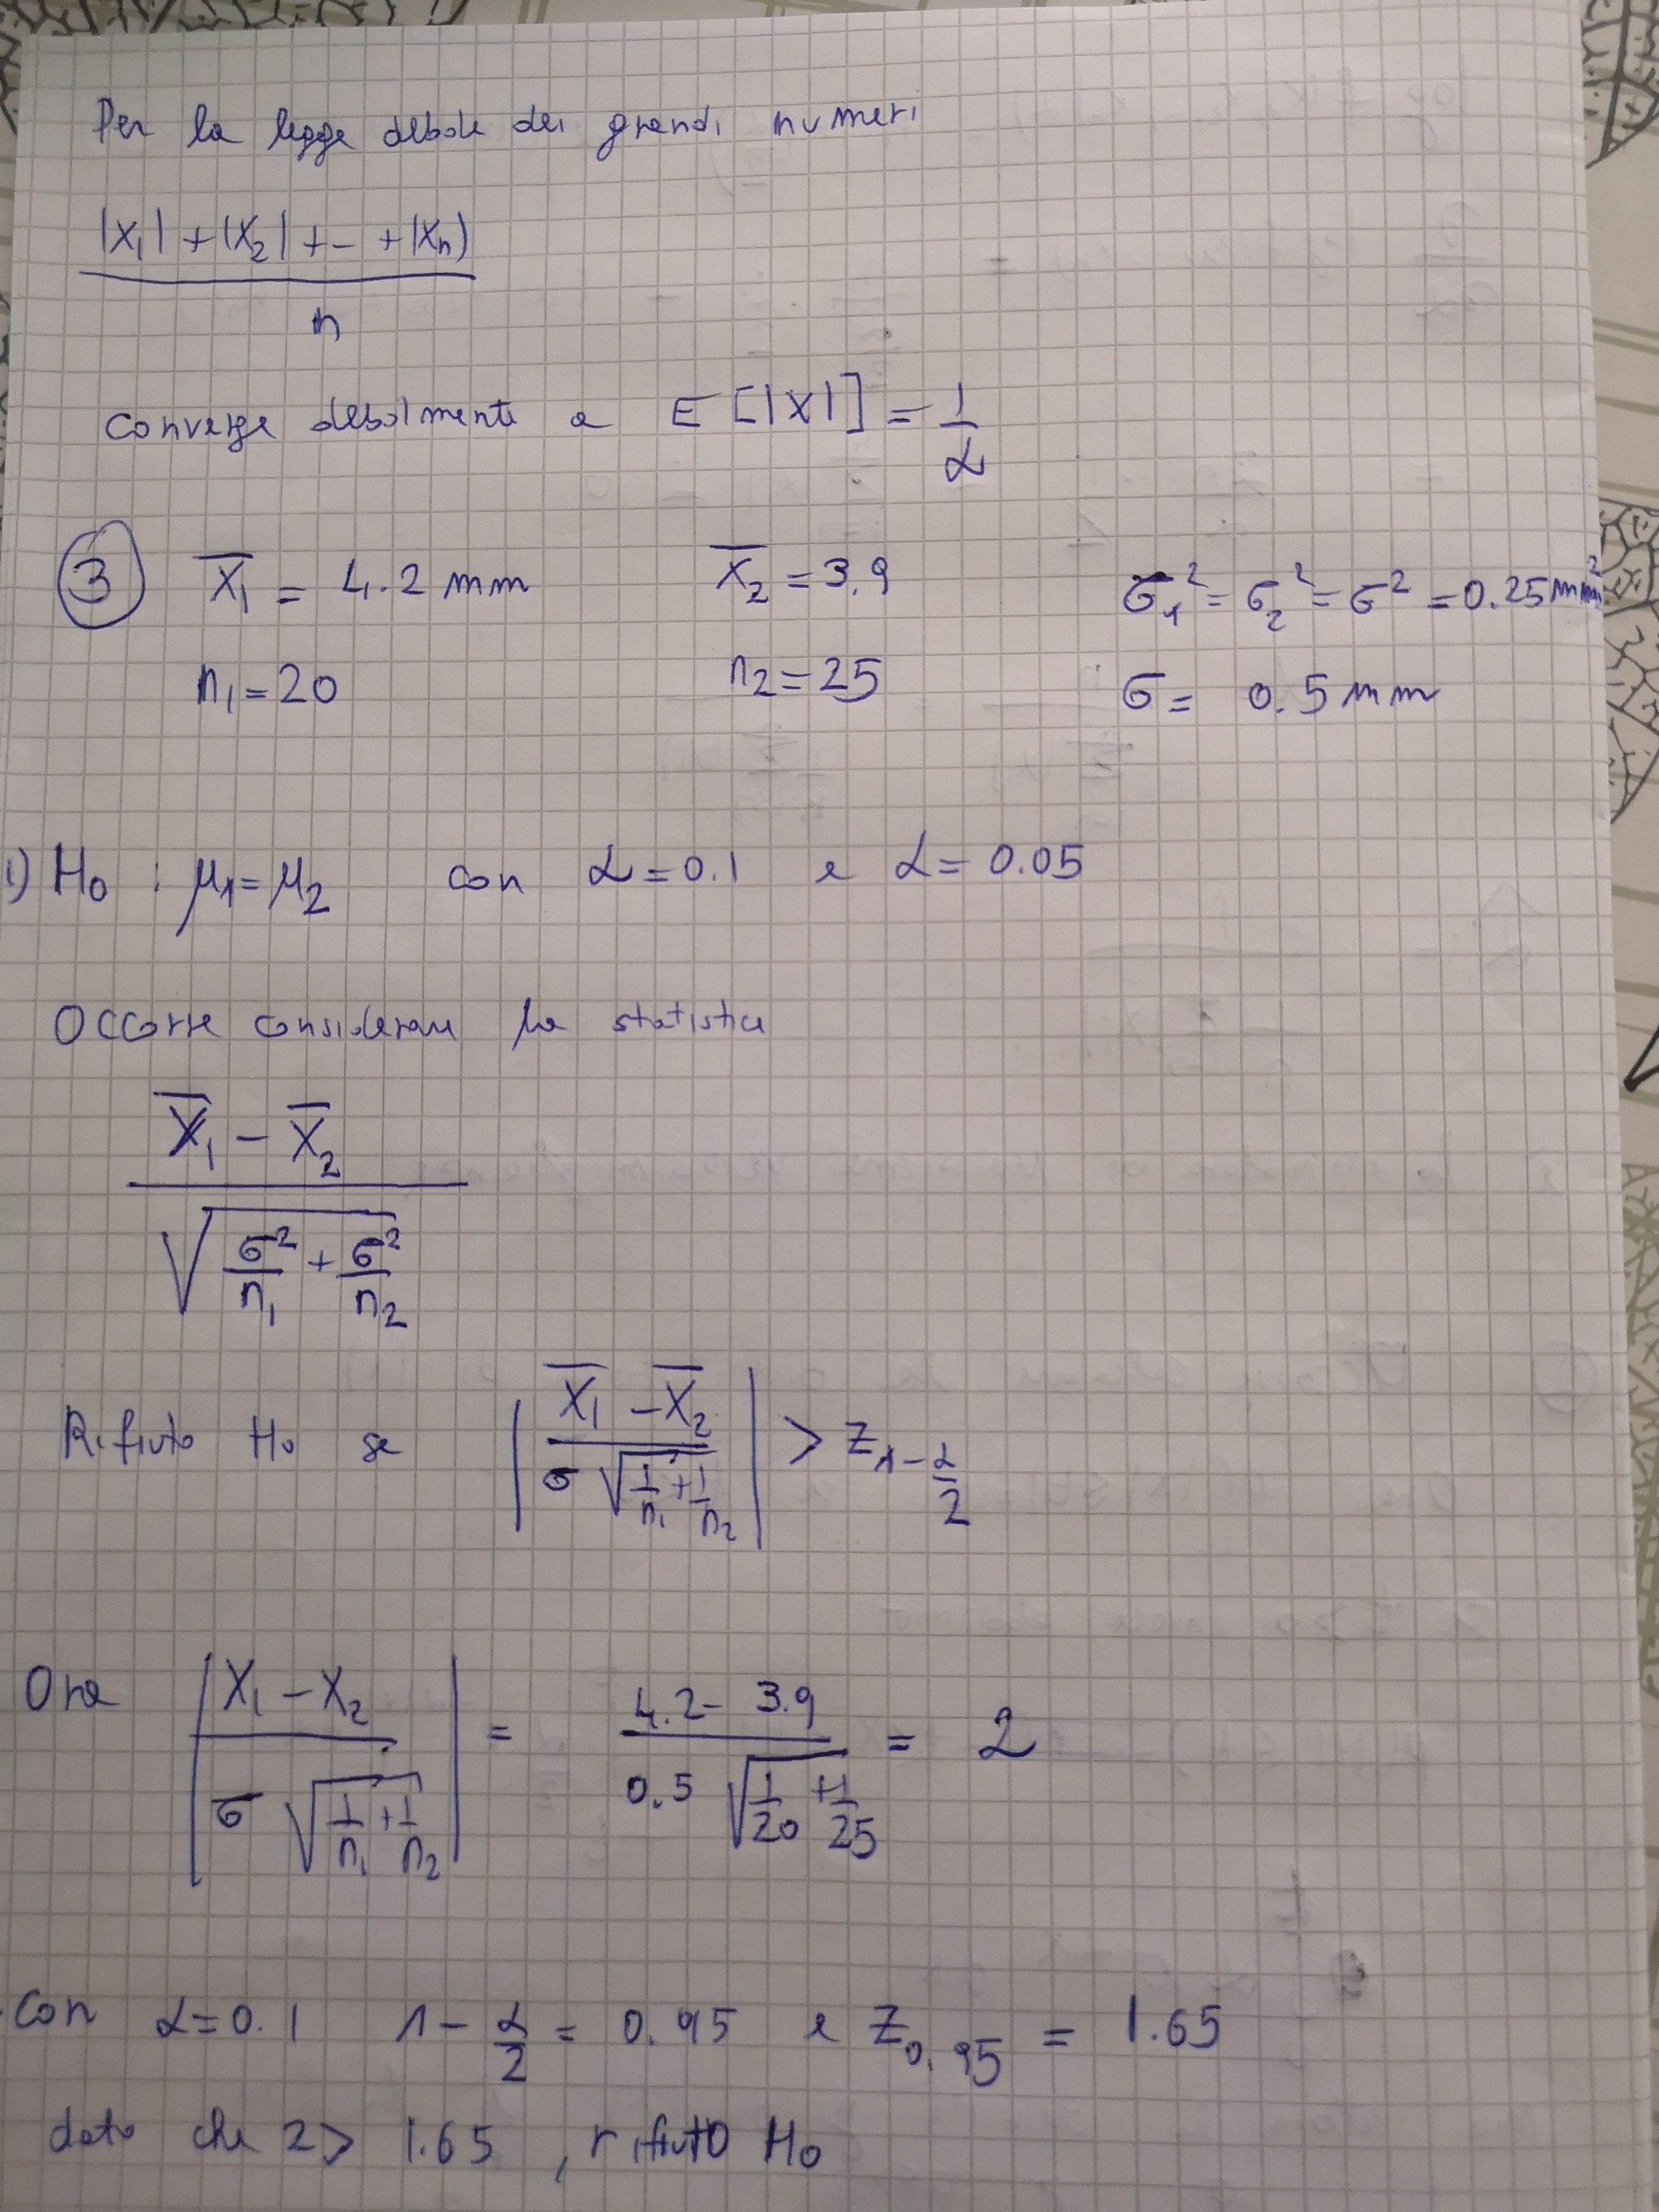 Per la legge debole dei grandi numeri
|X₁| + |X₂| + - + |Xₙ)
n
converge debolmente a E[|X|] = 1/α
③ X̄₁ = 4.2 mm X̄₂ = 3.9 σ₁² = σ₂² = σ² = 0.25 mm²
n₁ = 20 n₂ = 25 σ = 0.5 mm
1) H₀ : μ₁ = μ₂ con α = 0.1 e α = 0.05
Occorre considerare la statistica
X̄₁ - X̄₂
√(σ²/n₁ + σ²/n₂)
Rifiuto H₀ se | (X̄₁ - X̄₂) / (σ √(1/n₁ + 1/n₂)) | > z_{1-α/2}
Ora | (X₁ - X₂) / (σ √(1/n₁ + 1/n₂)) | = (4.2 - 3.9) / (0.5 √(1/20 + 1/25)) = 2
- con α = 0.1 1 - α/2 = 0.95 e z_{0.95} = 1.65
dato che 2 > 1.65, rifiuto H₀